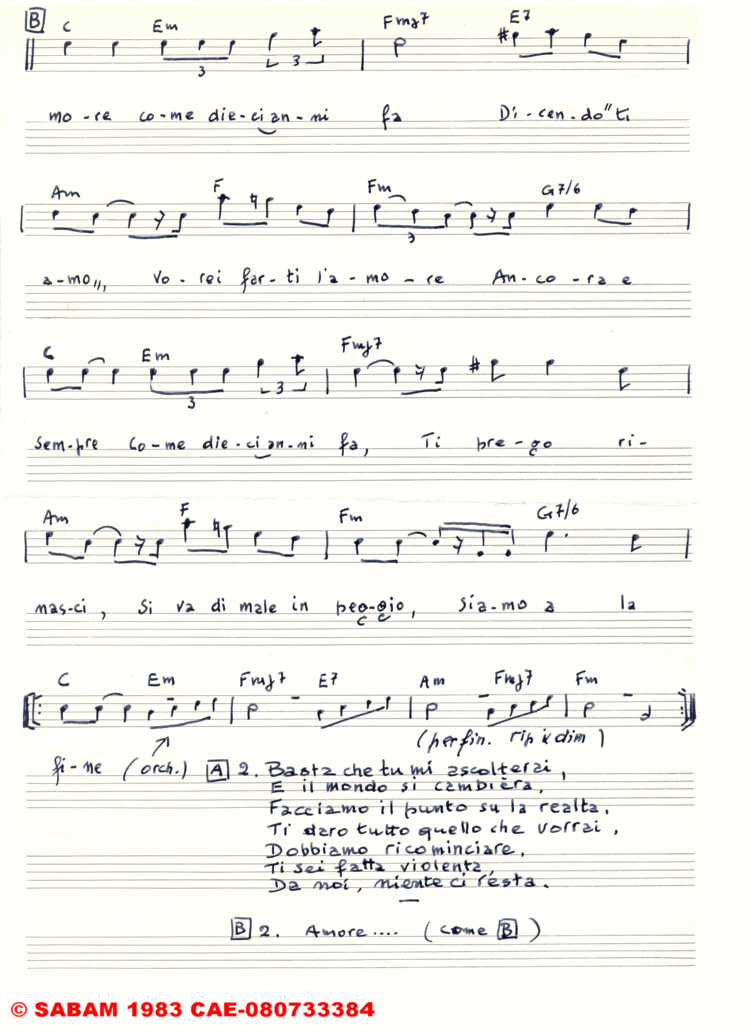 B C Em Fmj7 E7
3 3
mo-re co-me die-ci an-ni fa Di-cen-do "ti
Am F Fm G7/6
3
a-mo", Vo-rei far-ti l'a-mo-re An-co-ra e
C Em Fmj7
3 3
sem-pre co-me die-ci an-ni fa, Ti pre-go ri-
Am F Fm G7/6
nas-ci, Si va di male in peg-gio, Sia-mo a la
C Em Fmj7 E7 Am Fmj7 Fm
(per fin. rip x dim)
fi-ne (orch.) A 2. Basta che tu mi ascolterai,
E il mondo si cambièra,
Facciamo il punto su la realta.
Ti daro tutto quello che vorrai,
Dobbiamo ricominciare,
Ti sei fatta violenta,
Da noi, niente ci resta.
B 2. Amore.... (come B)
© SABAM 1983 CAE-080733384